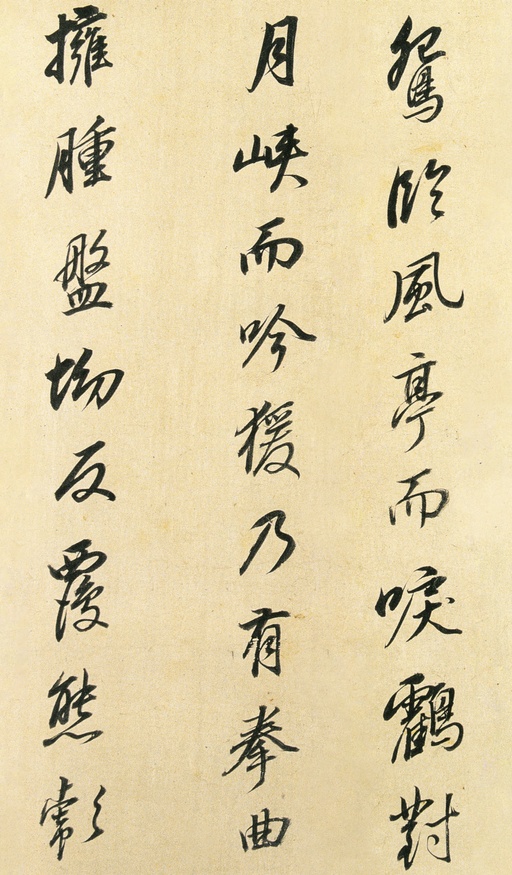 鴛臨風亭而唳鸖對
月峽而吟猨乃有拳曲
擁腫盤坳反覆熊彪